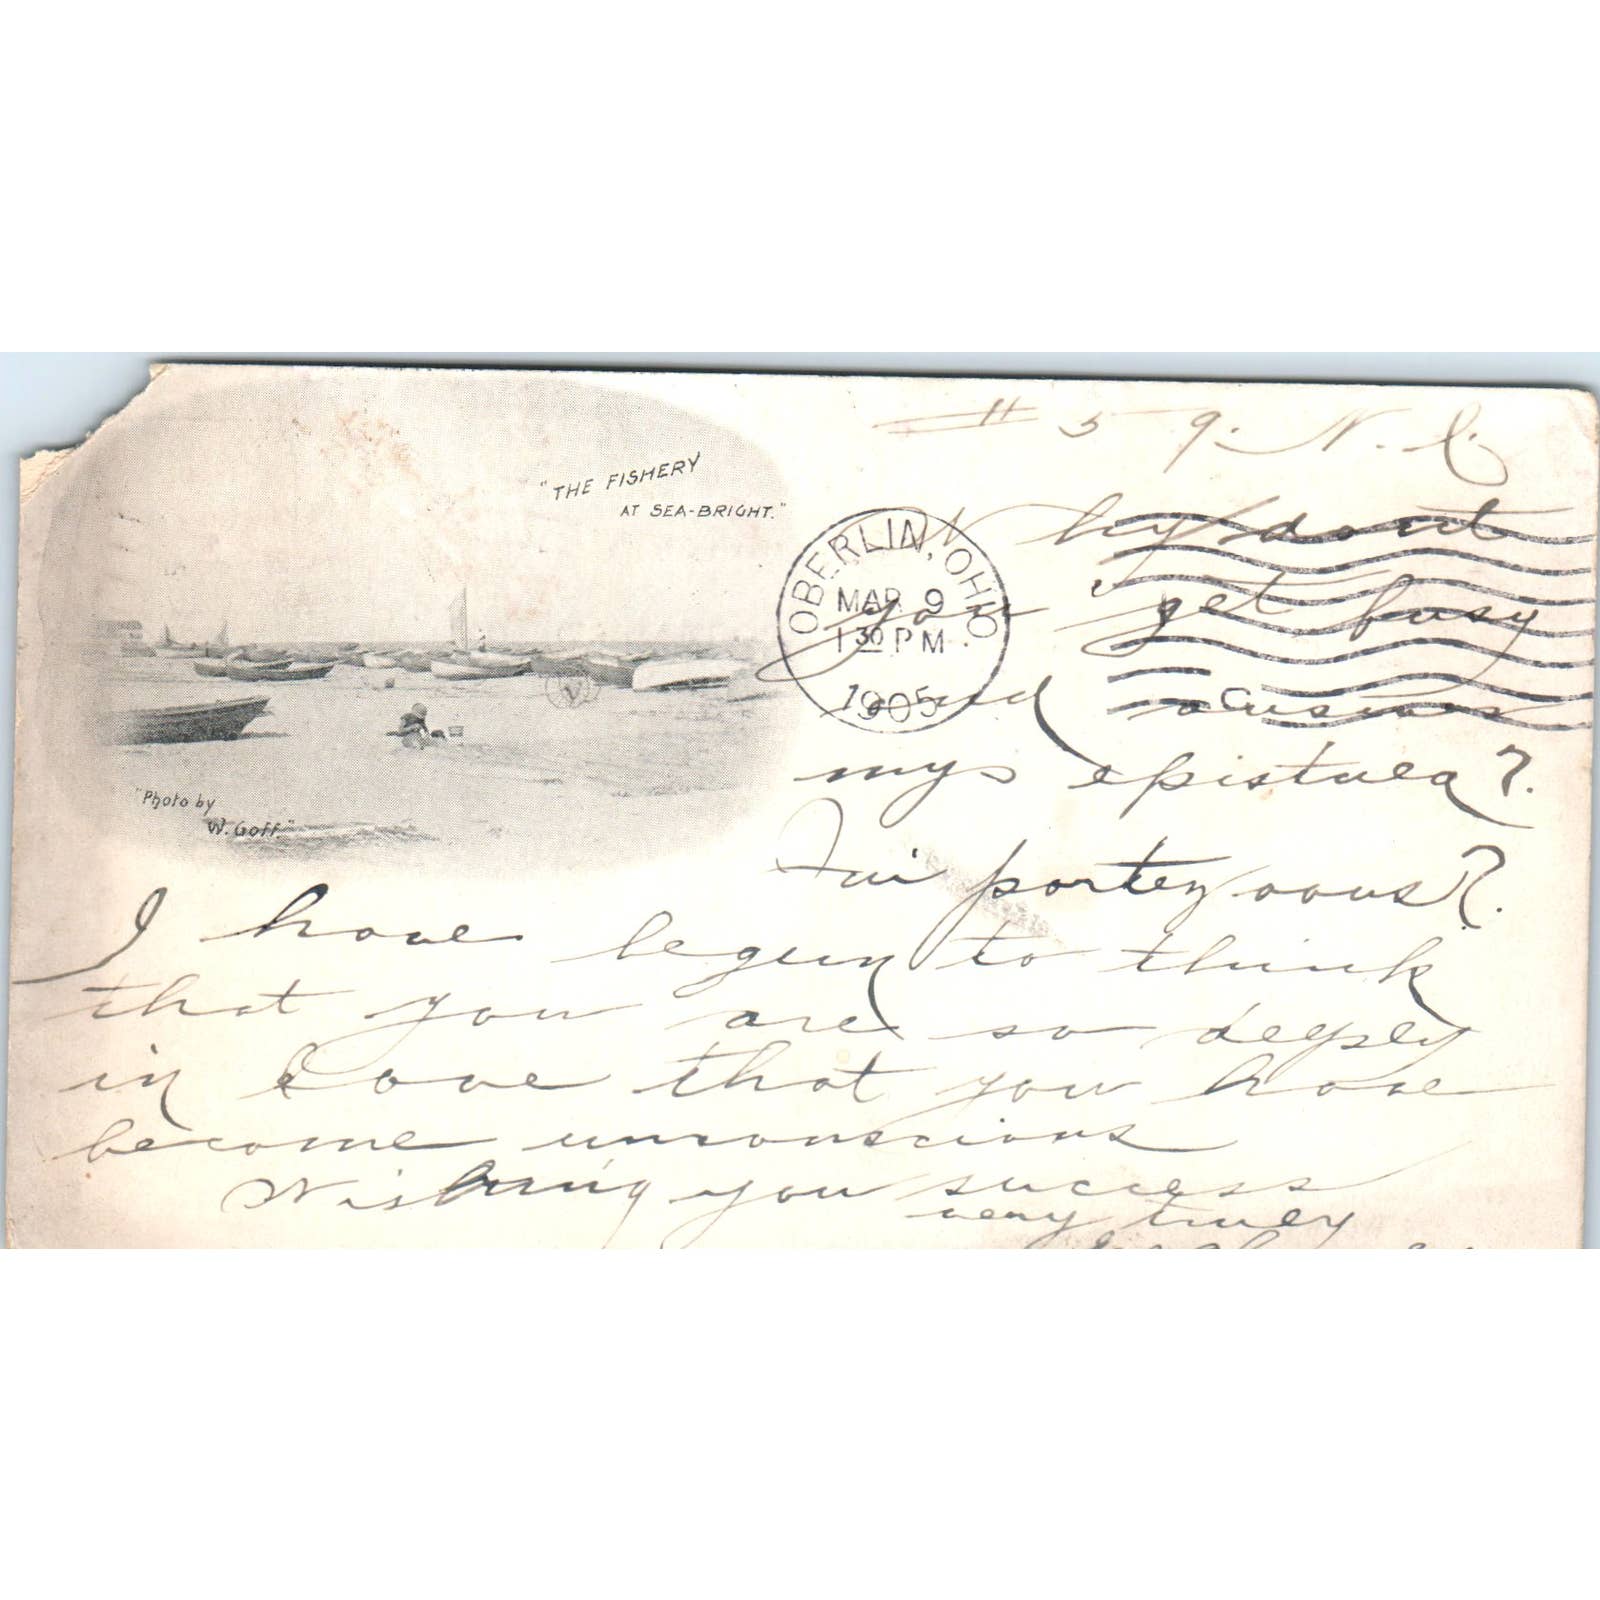 "THE FISHERY
AT SEA-BRIGHT."
"Photo by
W. Goff."
OBERLIN, OHIO
MAR 9
1 30 PM
1905
# 59. N. C.
Why don't
you "get busy
and
my epistula?
portez vous?.
I have begun to think
that you are so deeply
in love that you have
become unconscious
Wishing you success
very truly